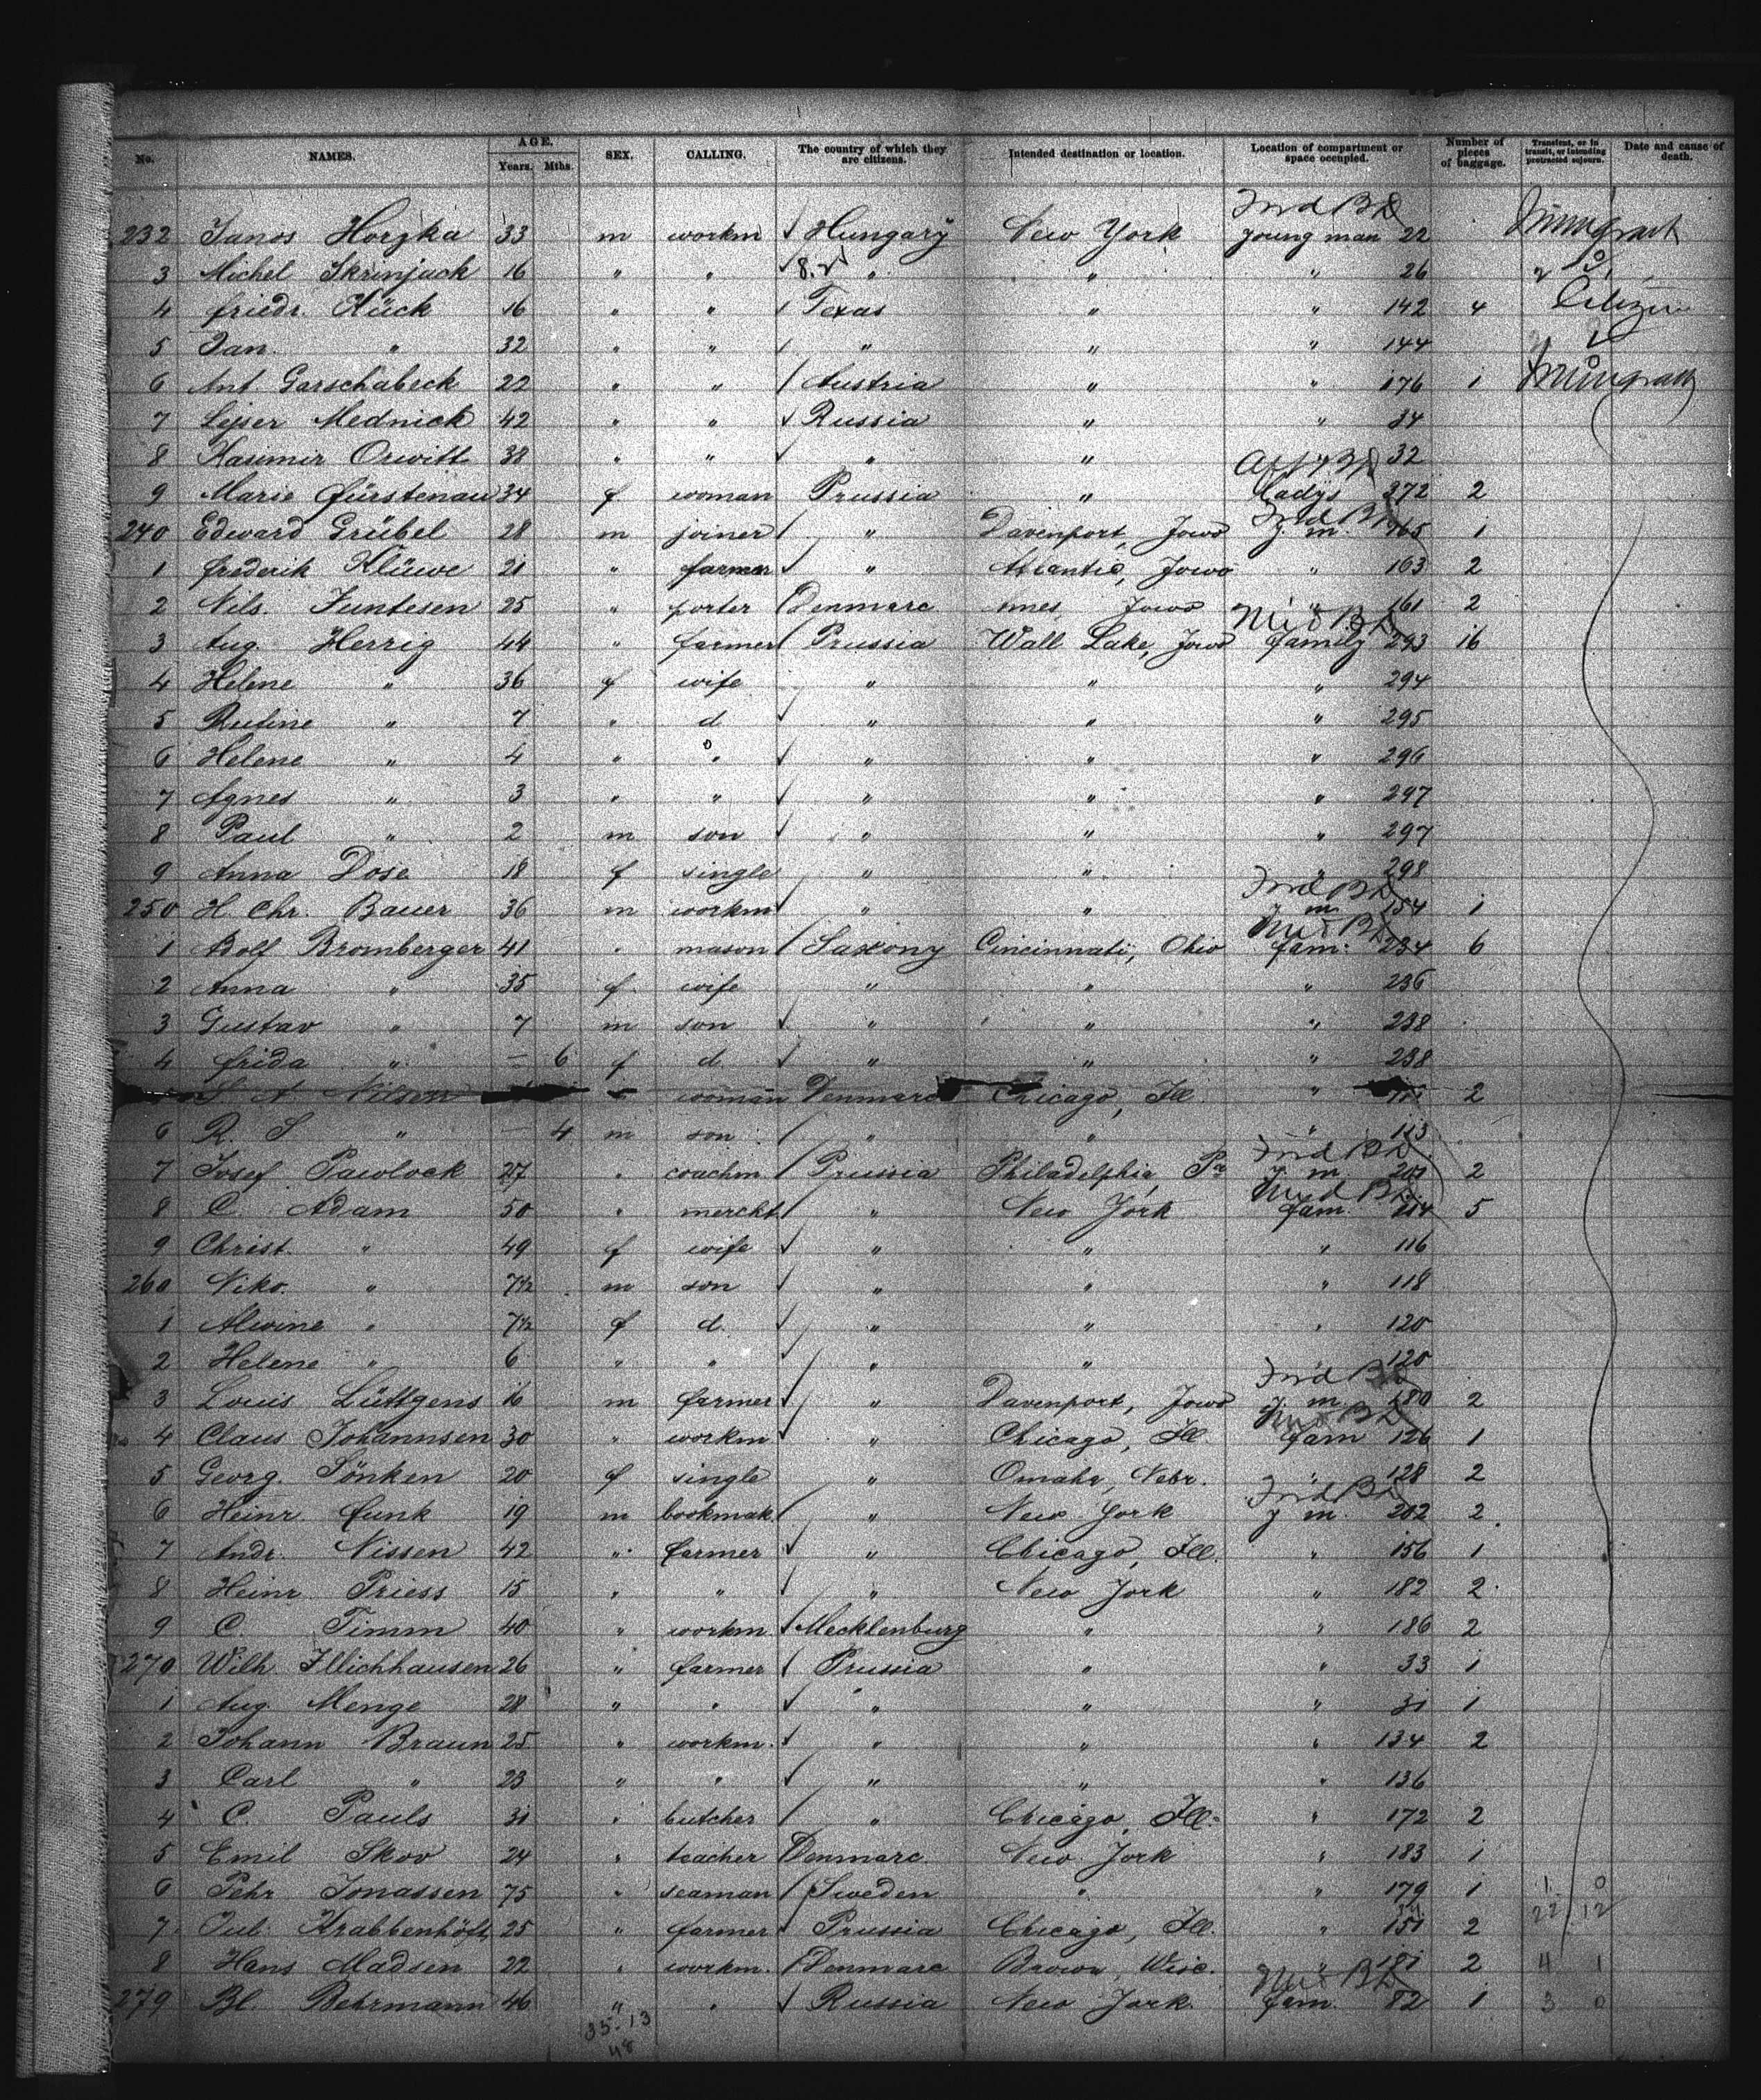 No. NAMES. AGE. Years. Mths. SEX. CALLING. The country of which they are citizens. Intended destination or location. Location of compartment or space occupied. Number of pieces of baggage. Transient, or in transit, or intending protracted sojourn. Date and cause of death.
232 Janos Horzka 33 m workm Hungary New York young man 22
3 Michel Skrinjack 16 " " " " " 26
4 Friedr. Kück 16 " " Texas " " 142 4 Citizen
5 Jan. " 32 " " " " " 144
6 Ant Garschabeck 22 " " Austria " " 176 1
7 Lejser Mednick 42 " " Russia " " 34
8 Kasimir Orwitt 38 " " " " 32
9 Marie Fürstenau 34 f woman Prussia " Ladys 372 2
240 Edward Grübel 28 m joiner " Davenport, Jowa y. m. 165 1
1 Frederik Klüwe 21 " farmer " Atlantic, Jowa " 163 2
2 Nils. Juntesen 25 " porter Denmarc Ames, Jowa " 161 2
3 Aug. Herrig 44 " farmer Prussia Wall Lake, Jowa family 293 16
4 Helene " 36 f wife " " " 294
5 Rutine " 7 " d " " " 295
6 Helene " 4 " " " " " 296
7 Agnes " 3 " " " " " 297
8 Paul " 2 m son " " " 297
9 Anna Dose 18 f single " " " 298
250 H. Chr. Bauer 36 m workm " " y m 154 1
1 Adolf Bromberger 41 " mason Saxony Cincinnati, Ohio fam: 234 6
2 Anna " 35 f. wife " " " 236
3 Gustav " 7 m son " " " 238
4 Frida " — 6 f d. " " " 238
S A Nilsen woman Denmarc Chicago, Ill. " 2
6 R. S " — 4 m son " " " 113
7 Josef Pawlock 27 " coachm Prussia Philadelphia, Pa y. m. 201 2
8 C. Adam 50 " mercht. " New York fam. 114 5
9 Christ. " 49 f wife " " " 116
260 Niko. " 7½ m son " " " 118
1 Alwine " 7½ f d. " " " 120
2 Helene " 6 " " " " " 120
3 Louis Lüttgens 16 m farmer " Davenport, Jowa y. m. 180 2
4 Claus Johannsen 30 " workm " Chicago, Ill. fam 126 1
5 Georg. Sönken 20 f single " Omaha, Nebr. " 128 2
6 Heinr Funk 19 m bookmak. " New York y m. 202 2
7 Andr. Nissen 42 " farmer " Chicago, Ill. " 156 1
8 Heinr Priess 15 " " " New York " 182 2
9 C. Timm 40 " workm. Mecklenburg " " 186 2
270 Wilh Illichhausen 26 " farmer Prussia " " 33 1
1 Aug. Menge 28 " " " " " 31 1
2 Johann Braun 25 " workm. " " " 134 2
3 Carl " 23 " " " " " 136
4 C. Pauls 31 " butcher " Chicago, Ill. " 172 2
5 Emil Skov 24 " teacher Denmarc. New York " 183 1
6 Pehr Jonassen 75 " seaman Sweden " " 179 1 1 0
7 Jul. Krabbenhöft 25 " farmer Prussia Chicago, Ill. " 151 2 22 12
8 Hans Madsen 22 " workm. Denmarc Brown, Wisc. " 181 2 4 1
279 Bl. Behrmann 46 " " Russia New York. fam. 82 1 3 0
35-13
48